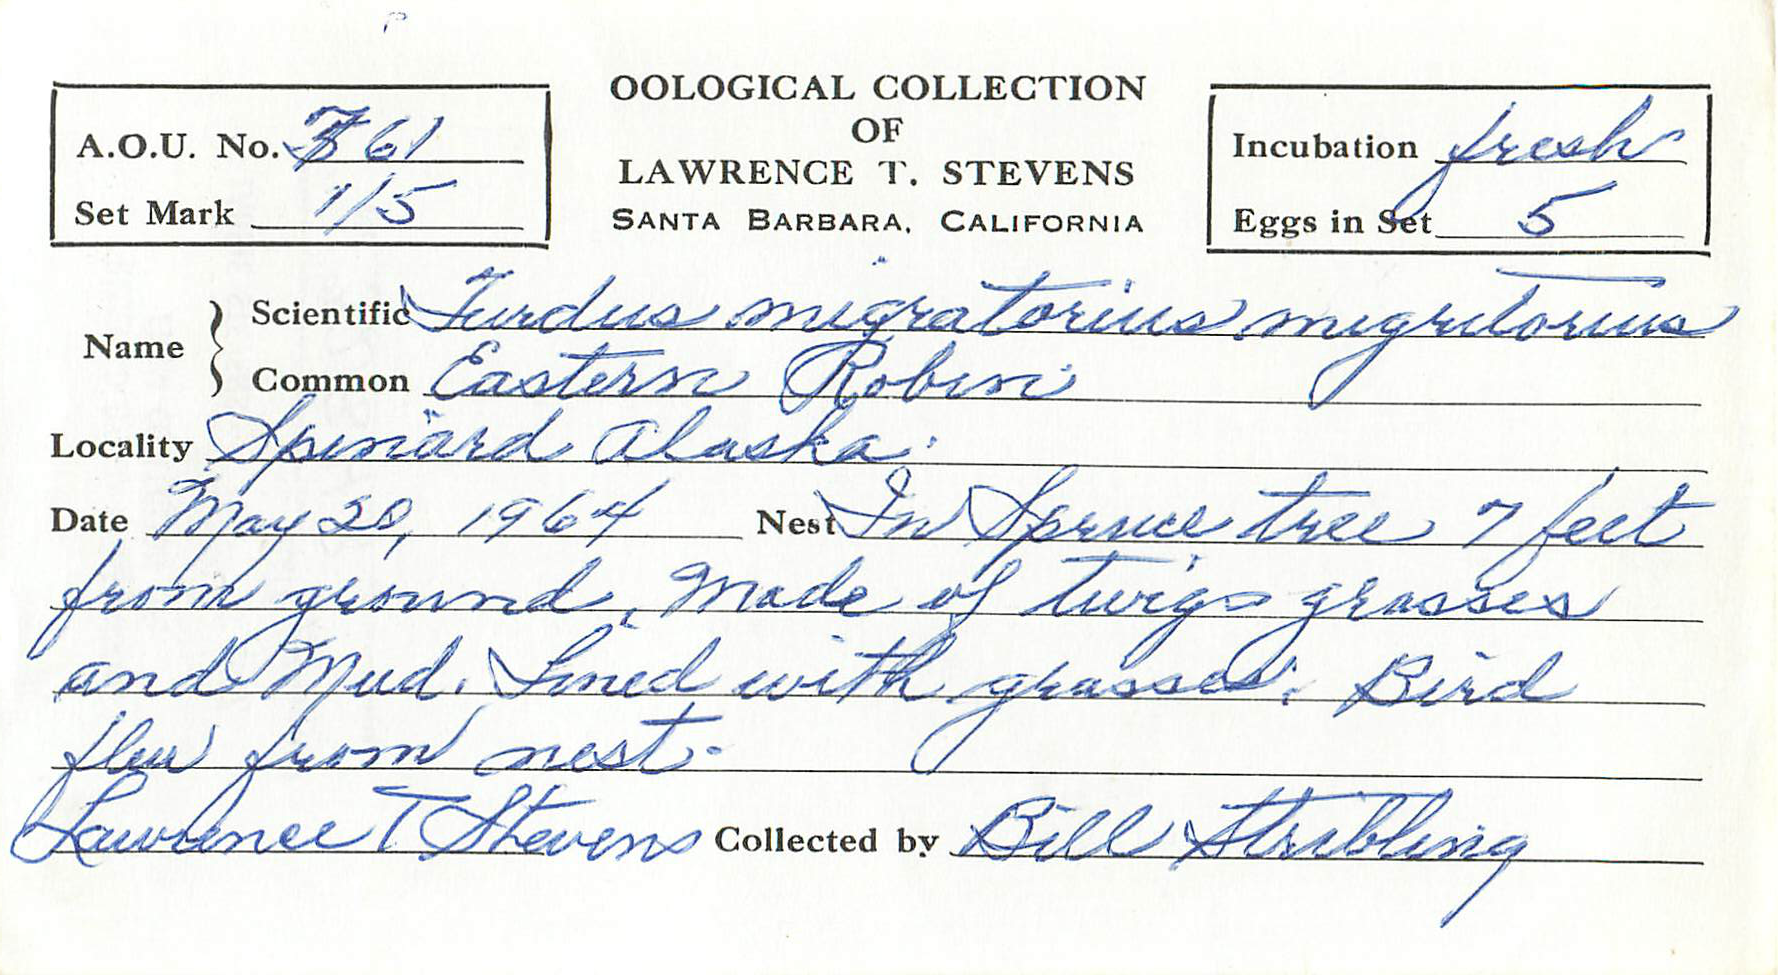 OOLOGICAL COLLECTION
OF
LAWRENCE T. STEVENS
SANTA BARBARA, CALIFORNIA
A.O.U. No. 761
Set Mark 1/5
Incubation fresh
Eggs in Set 5
Name
Scientific Turdus migratorius migritorius
Common Eastern Robin
Locality Speniard Alaska.
Date May 20, 1964 Nest In Spruce tree 7 feet
from ground. Made of twigs grasses
and Mud. Lined with grasses. Bird
flew from nest.
Lawrence T Stevens Collected by Bill Stribling